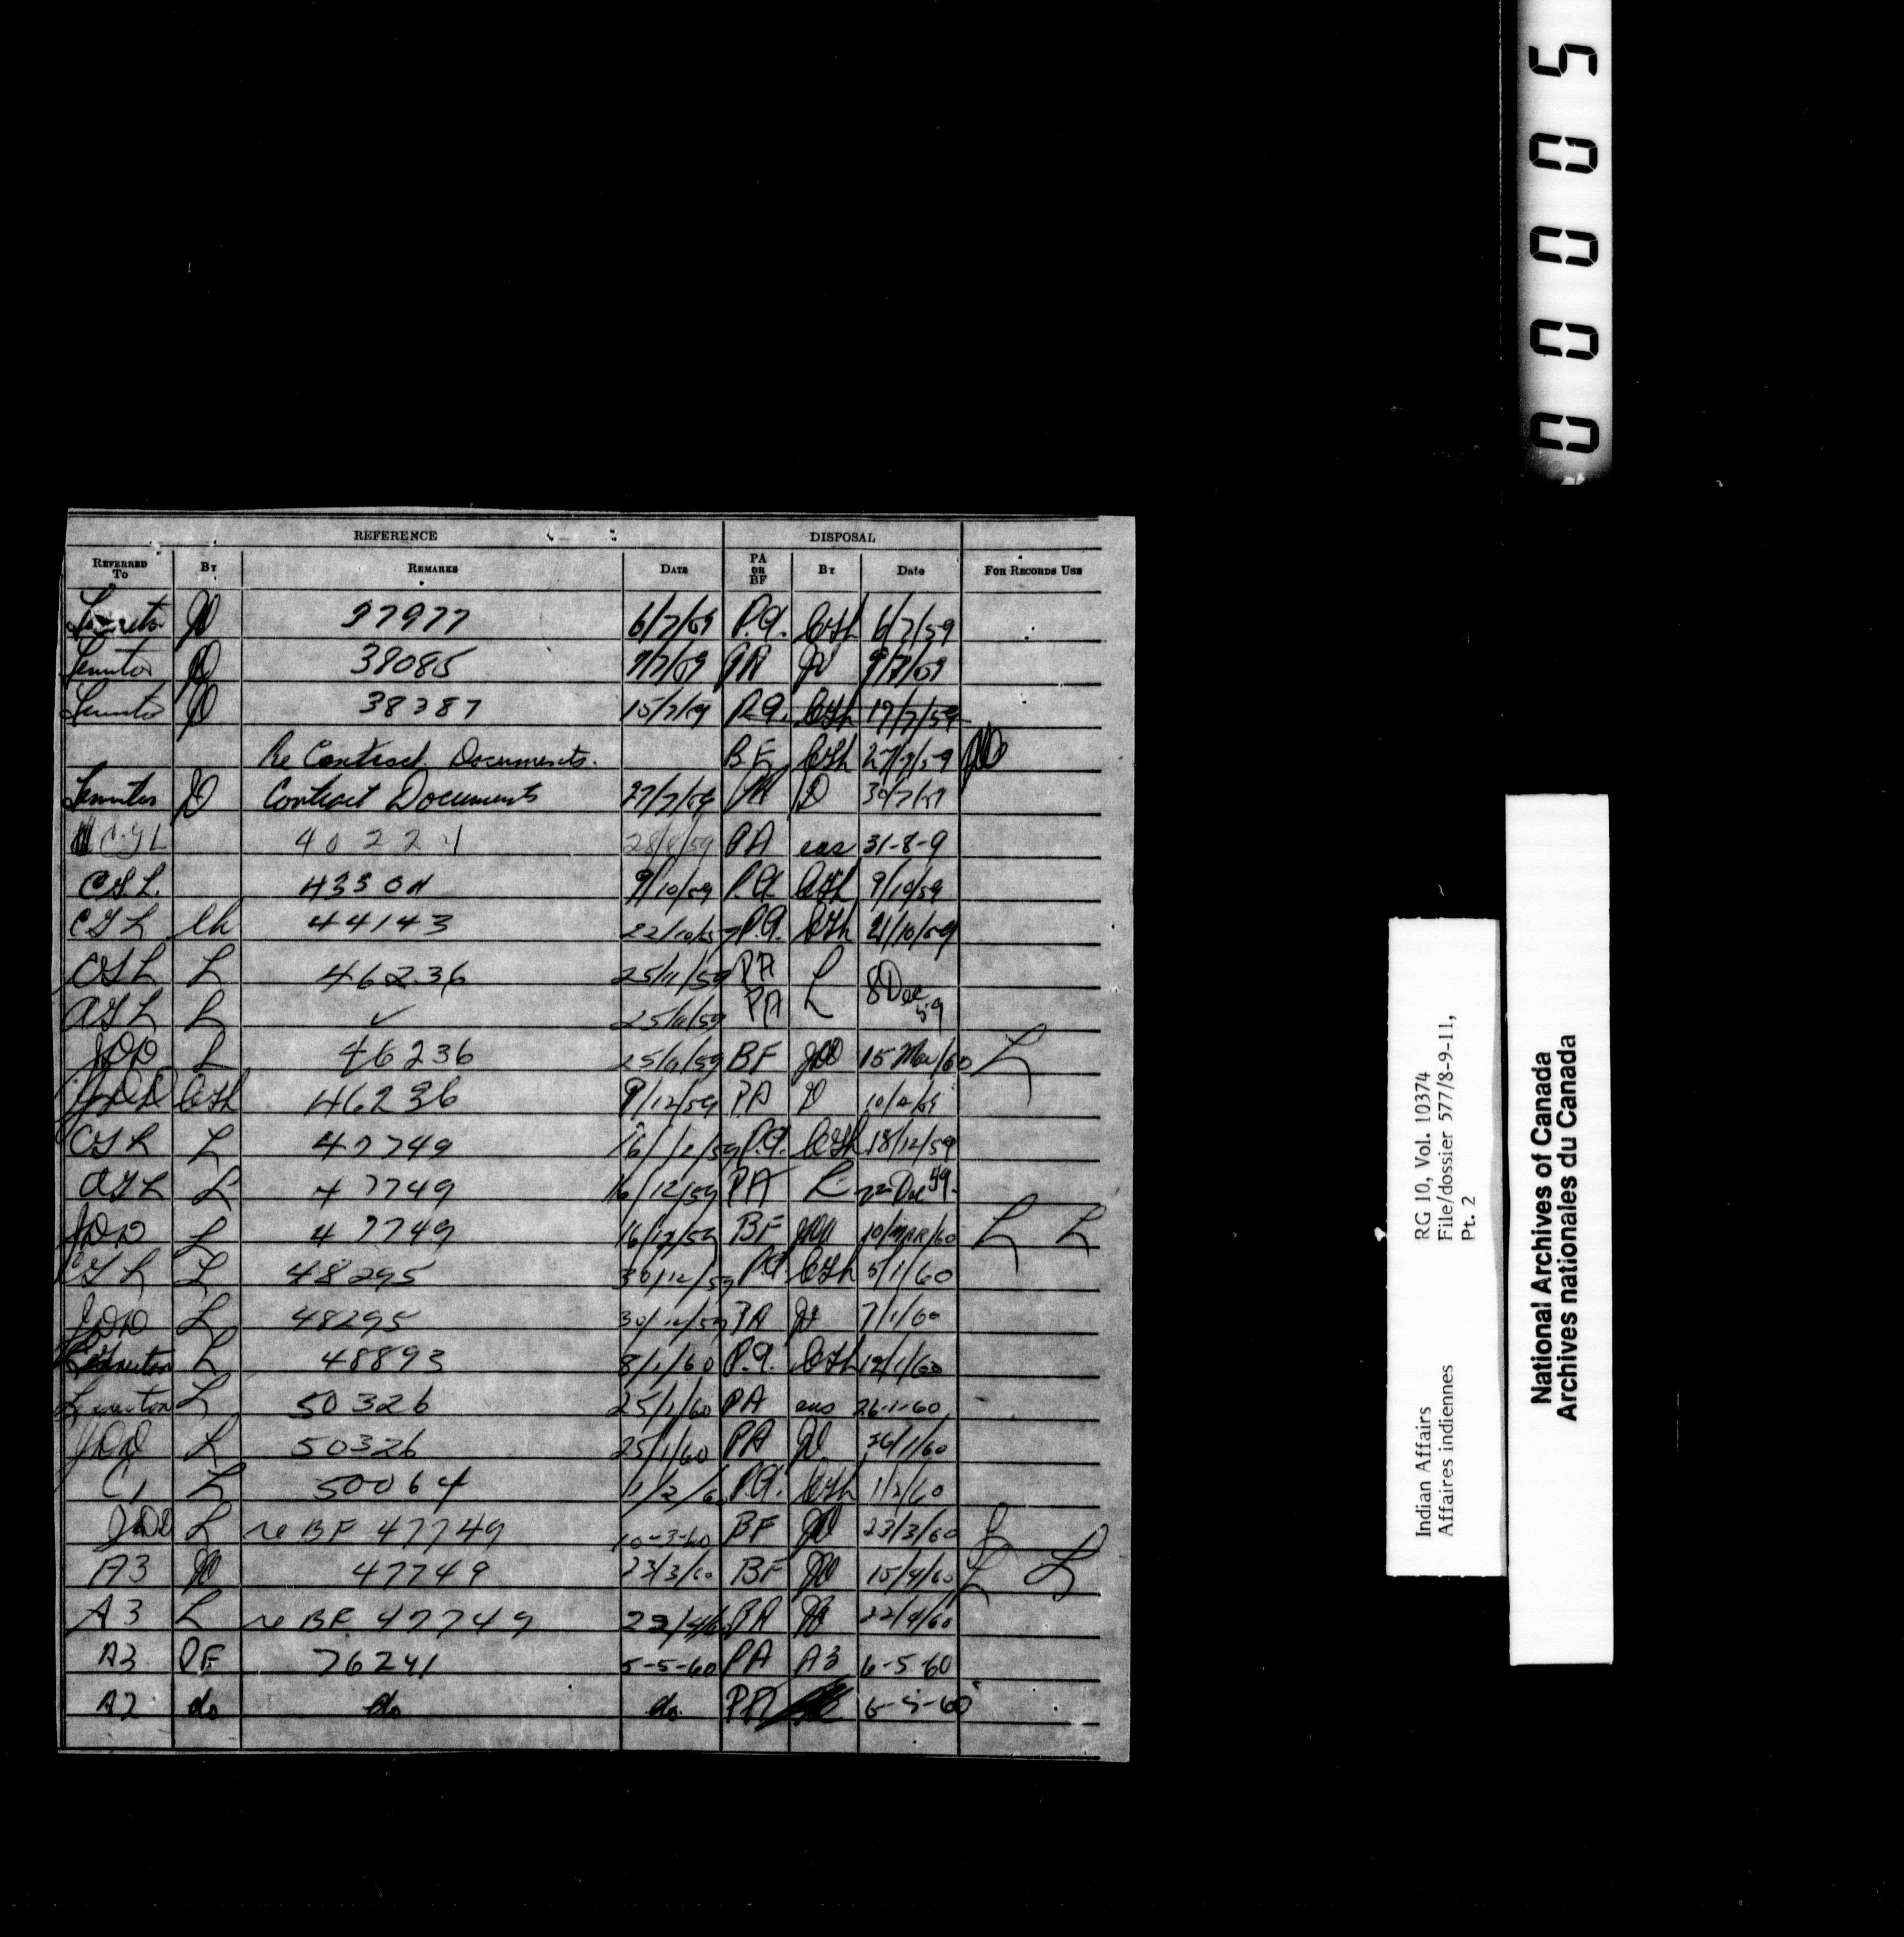 00005
REFERENCE DISPOSAL
REFERRED TO BY REMARKS DATE PA OR BF BY DATE FOR RECORDS USE
37977 6/7/59 P.A. CGL 6/7/59
39085 7/7/59 PA JD 9/7/59
38387 15/7/59 P.A. CGL 17/7/59
Re Contract Documents. BF CGL 27/7/59 JD
JD Contract Documents 27/7/59 PA D 30/7/59
CGL 40224 28/8/59 PA eas 31-8-9
CGL 43304 9/10/59 P.A. CGL 9/10/59
CGL 44143 22/10/59 P.A. CGL 21/10/59
CGL L 46236 25/11/59 PA
AGL L ✓ 25/11/59 PA L 8 Dec 59
JDD L 46236 25/11/59 BF JDD 15 Mar/60 L
JDD CGL 46236 9/12/59 PA D 10/12/59
CGL L 47749 16/12/59 P.A. CGL 18/12/59
AGL L 47749 16/12/59 PA L 22 Dec 59
JDD L 47749 16/12/59 BF JDD 10/MAR/60 L L
CGL L 48295 30/12/59 P.A. CGL 5/1/60
JDD L 48295 30/12/59 PA JD 7/1/60
L 48893 8/1/60 P.A. CGL 12/1/60
L 50326 25/1/60 PA eas 26-1-60
JDD L 50326 25/1/60 PA JD 26/1/60
C1 L 50064 1/2/60 P.A. CGL 1/2/60
JDD L re BF 47749 10-3-60 BF JD 23/3/60 L
A3 JD 47749 23/3/60 BF JD 15/4/60 L L
A3 L re BF 47749 22/4/60 PA JD 22/4/60
A3 PF 76241 5-5-60 PA A3 6-5-60
A2 do do do PA 6-5-60
Indian Affairs RG 10, Vol. 10374
Affaires indiennes File/dossier 577/8-9-11,
Pt. 2
National Archives of Canada
Archives nationales du Canada